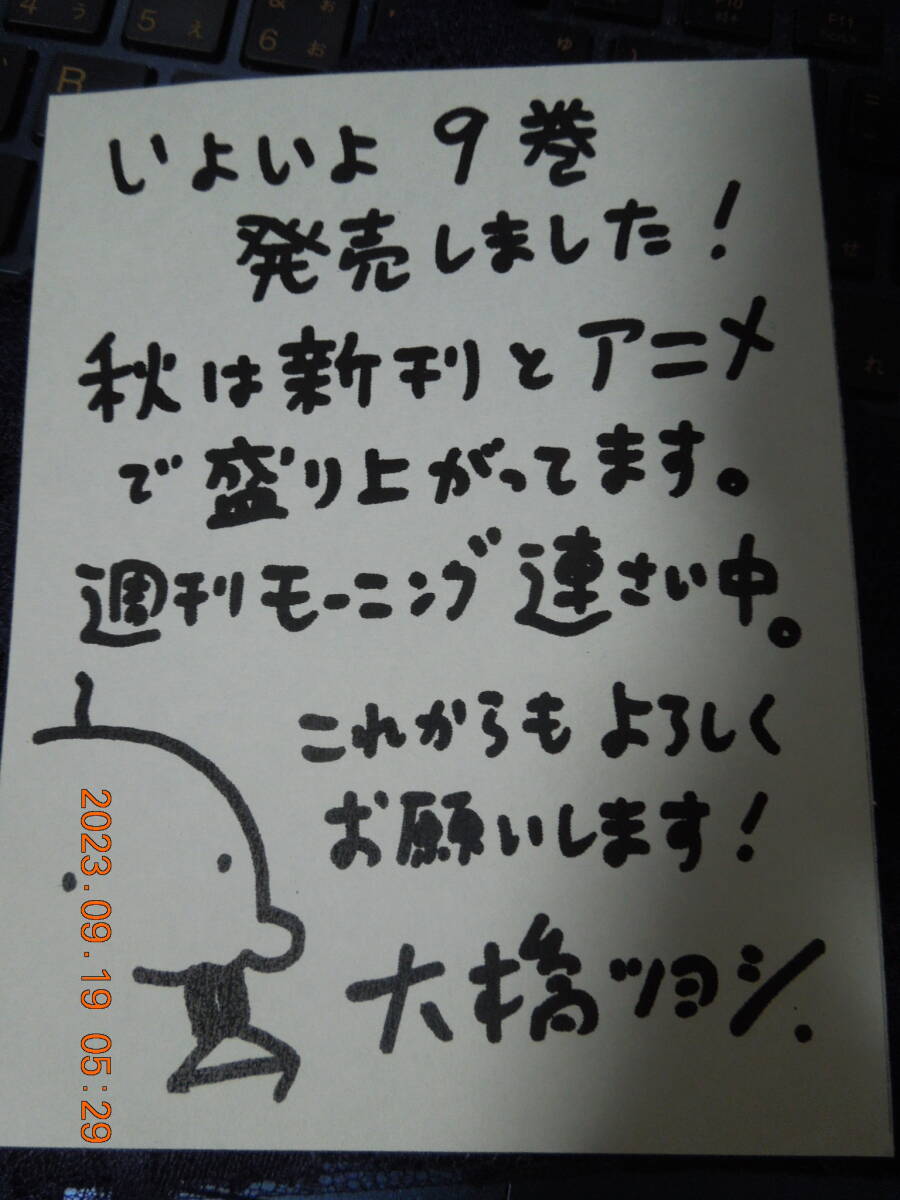 いよいよ 9巻
発売しました!
秋は新刊とアニメ
で盛り上がってます。
週刊モーニング連さい中。
これからもよろしく
お願いします!
大橋ツヨシ.
2023.09.19 05:29
4 う
5 え
& ぉ
6 お
ゅ
B
F10
F11
せ
れ